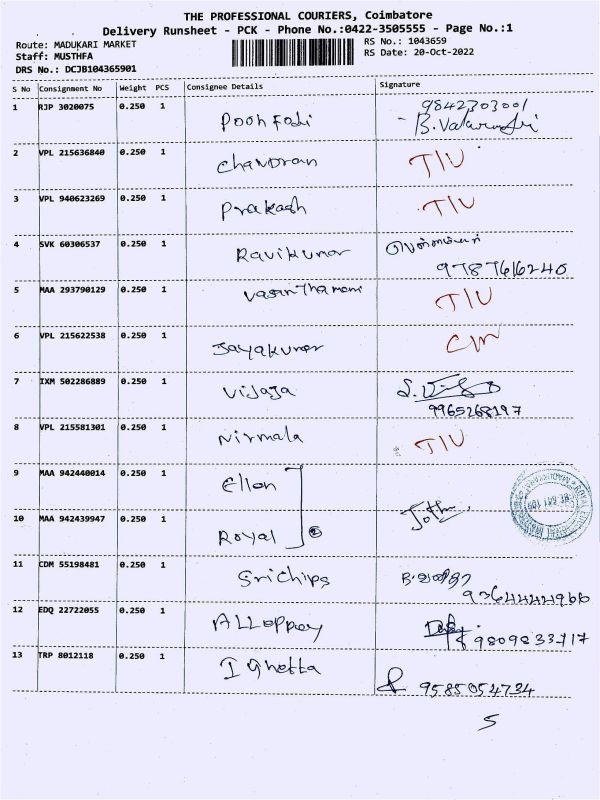 THE PROFESSIONAL COURIERS, Coimbatore
Delivery Runsheet - PCK - Phone No.:0422-3505555 - Page No.:1
Route: MADUKARI MARKET
RS No.: 1043659
Staff: MUSTHFA
RS Date: 20-Oct-2022
DRS No.: DCJB104365901
S No Consignment No Weight PCS Consignee Details Signature
1 RJP 3020075 0.250 1 9842303001
2 VPL 215636840 0.250 1 Chandran T/U
3 VPL 940623269 0.250 1 Prakash T/U
4 SVK 60306537 0.250 1 Ravikumar
9787616240
5 MAA 293790129 0.250 1 Vasanthamani T/U
6 VPL 215622538 0.250 1 Jayakumar
7 IXM 502286889 0.250 1 Vijaja
9965268197
8 VPL 215581301 0.250 1 Nirmala T/U
9 MAA 942440014 0.250 1 Ellon
10 MAA 942439947 0.250 1 Royal 2
11 CDM 55198481 0.250 1 Sri Chips
9364444966
12 EDQ 22722055 0.250 1 ALLeppey 9809833717
13 TRP 8012118 0.250 1
9585054734
5